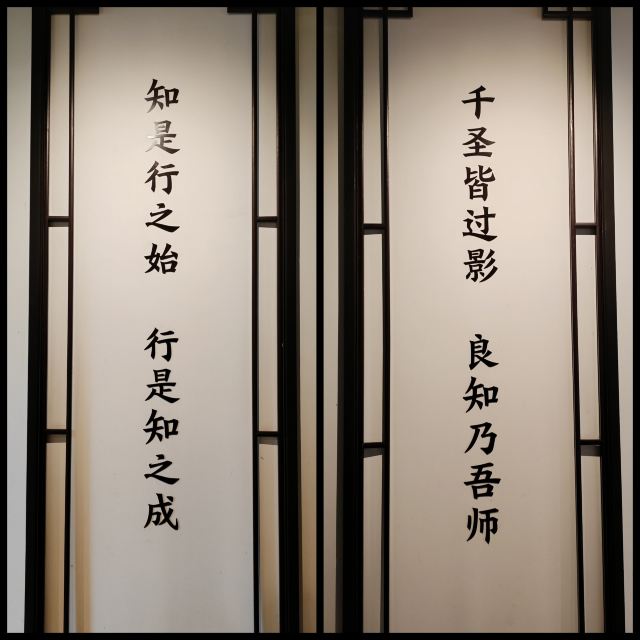 知是行之始 行是知之成
千圣皆过影 良知乃吾师